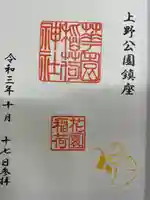 上野公園鎮座
花園
稲荷
神社
花園
稲荷
令和三年十月
十七日参拝